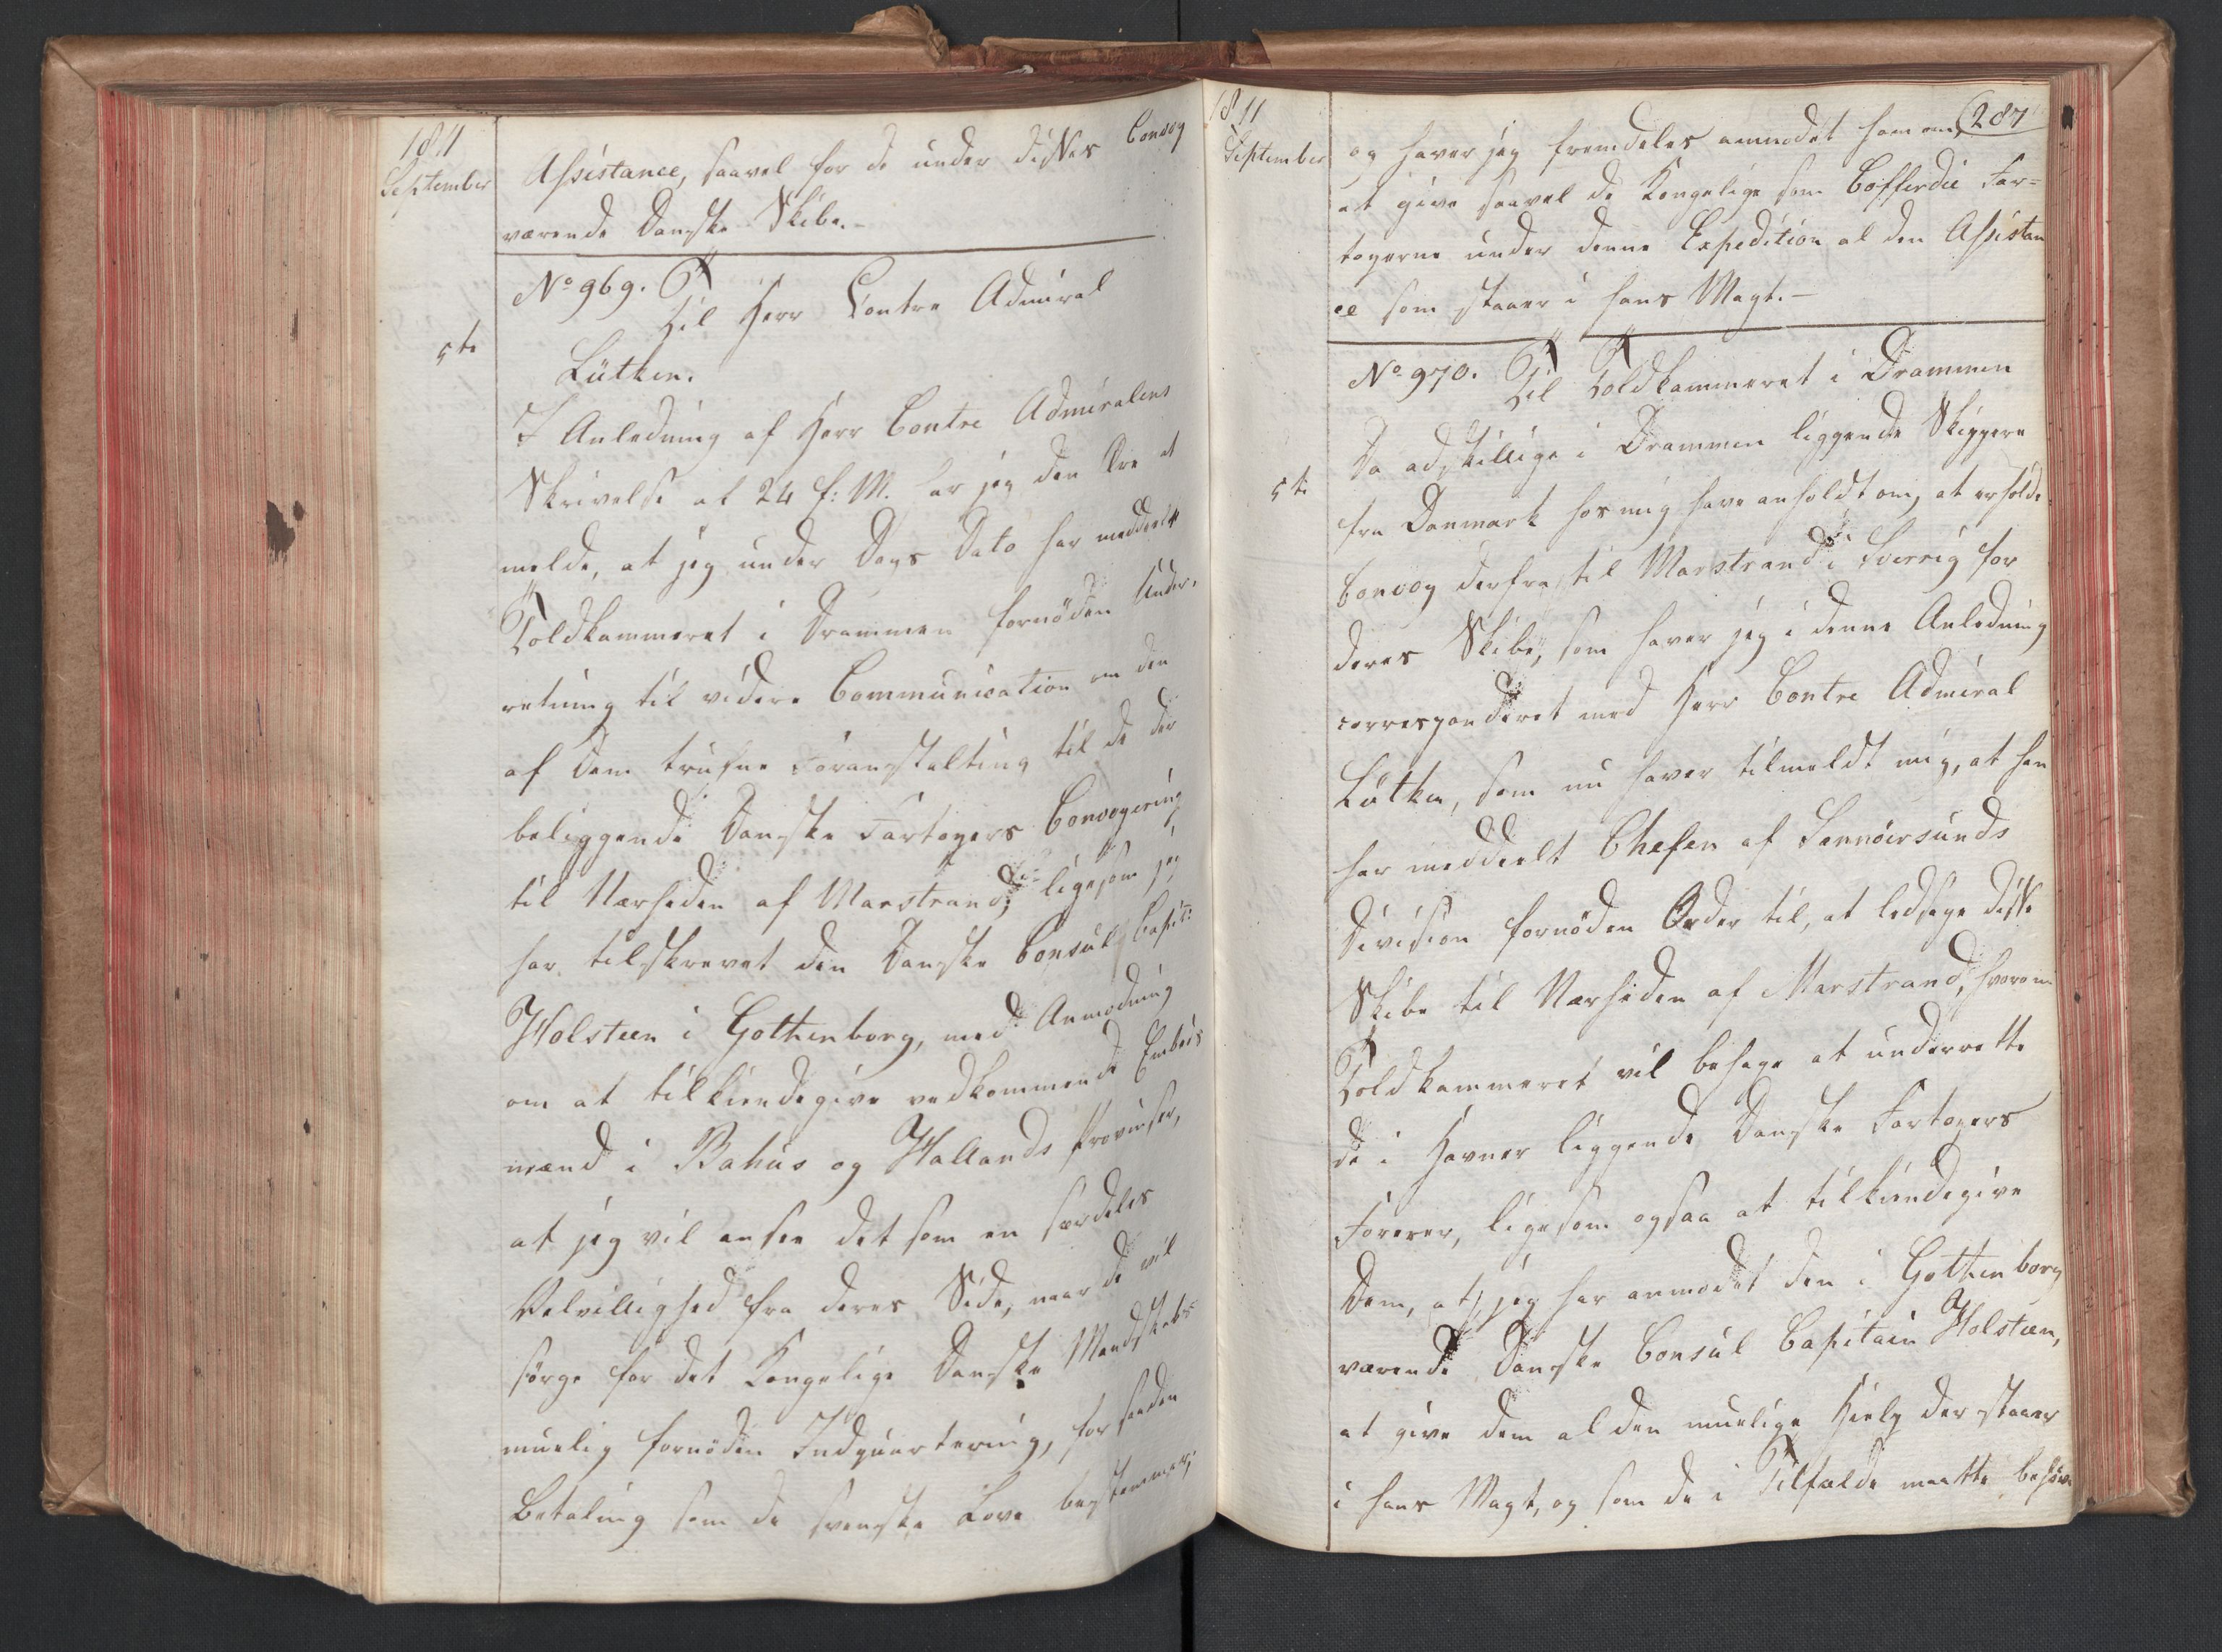 1811
September
Assistance, saavel for de under disses Convoy
værende Danske Skibe.-
No 969.
5te
Til Herr Contre Admiral
Lütken.
I Anledning af Herr Contre Admiralens
Skrivelse af 24 f: M. har jeg den Ære at
melde, at jeg under Dags Dato har meddeelt
Toldkammeret i Drammen fornöden Under-
retning til videre Communication om den
af Dem trufne Foranstaltning til de der
beliggende Danske Fartøyers Convoyering
til Nærheden af Marstrand, ligesom jeg
har tilskrevet den Danske Consul Capit:
Holsteen i Gothenborg, med Anmodning
om at tilkiendegive vedkommende Embeds
mænd i Bahus og Hallands Provinser,
at jeg vil ansee det som en særdeles
Velvillighed fra deres Side, naar de vil
sörge for det Kongelige Danske Mandskabs
muelig fornöden Indquartering, for saadan
Betaling som de svenske Love bestemmer,
1811
September
287
og haver jeg fremdeles anmodet ham om,
at give saavel de Kongelige som Cofferdie Far-
töyerne under denne Expedition al den Assistan
ce som staaer i hans Magt.-
No 970.
5te
Til Toldkammeret i Drammen
Da adskillige i Drammen liggende Skippere
fra Danmark hos mig have anholdt om, at erholde
Convoy derfra til Marstrand i Sverrig for
deres Skibe, som haver jeg i denne Anledning
correspondret med Herr Contre Admiral
Lütken, som nu haver tilmeldt mig, at han
har meddeelt Chefen af Sannöersunds
Division fornöden Order til, at ledsage disse
Skibe til Nærheden af Marstrand, hvorom
Toldkammeret vil behage at underrette
de i Havner liggende Danske Fartøyers
Förerer, ligesom ogsaa at tilkiendegive
Dem, at jeg har anmodet den i Gothenborg
værende Danske Consul Capitain Holsteen,
at give dem al den muelige Hielp der staaer
i hans Magt, og som de i Tilfælde maatte behöve